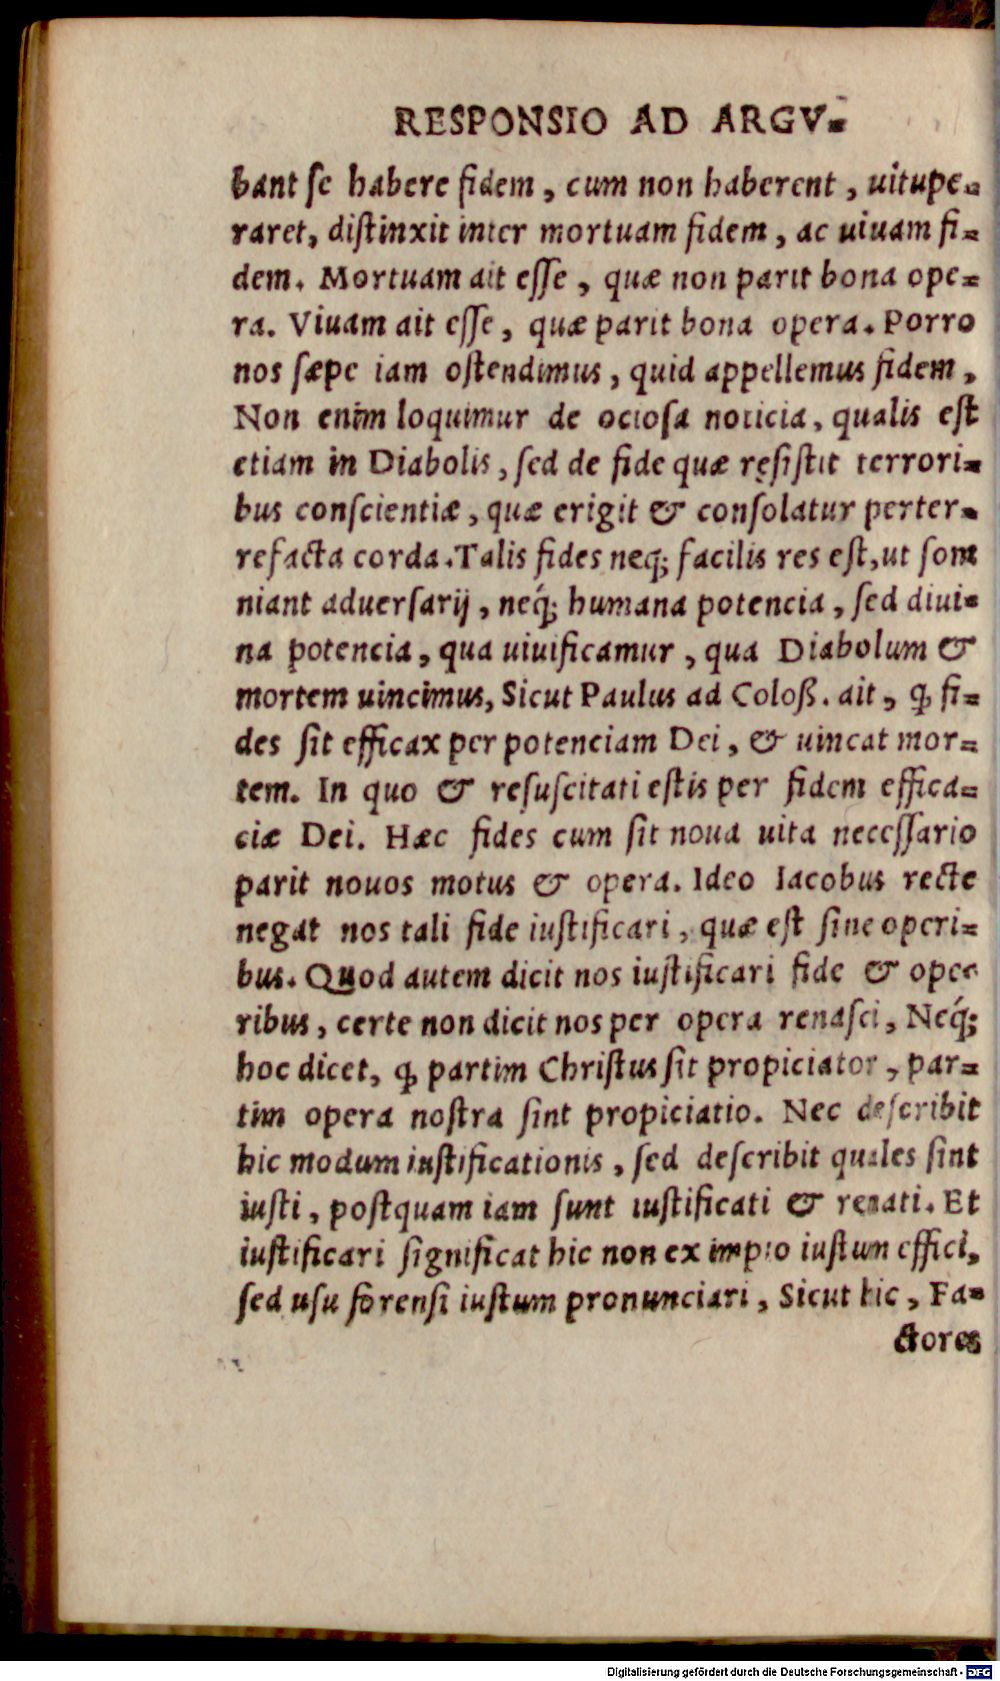 RESPONSIO AD ARGV-
bant se habere fidem, cum non haberent, uitupe-
raret, distinxit inter mortuam fidem, ac uiuam fi-
dem. Mortuam ait esse, quæ non parit bona ope-
ra. Viuam ait esse, quæ parit bona opera. Porro
nos sæpe iam ostendimus, quid appellemus fidem,
Non enim loquimur de ociosa noticia, qualis est
etiam in Diabolis, sed de fide quæ resistit terrori-
bus conscientiæ, quæ erigit & consolatur perter-
refacta corda. Talis fides neq; facilis res est, ut som
niant aduersarij, neq́; humana potencia, sed diui-
na potencia, qua uiuificamur, qua Diabolum &
mortem uincimus, Sicut Paulus ad Coloß. ait, ꝙ fi-
des sit efficax per potenciam Dei, & uincat mor-
tem. In quo & resuscitati estis per fidem effica-
ciæ Dei. Hæc fides cum sit noua uita necessario
parit nouos motus & opera. Ideo Iacobus recte
negat nos tali fide iustificari, quæ est sine operi-
bus. Quod autem dicit nos iustificari fide & ope
ribus, certe non dicit nos per opera renasci, Neq́;
hoc dicet, ꝙ partim Christus sit propiciator, par-
tim opera nostra sint propiciatio. Nec describit
hic modum iustificationis, sed describit quales sint
iusti, postquam iam sunt iustificati & renati. Et
iustificari significat hic non ex impio iustum effici,
sed usu forensi iustum pronunciari, Sicut hic, Fa-
ctores
Digitalisierung gefördert durch die Deutsche Forschungsgemeinschaft - DFG